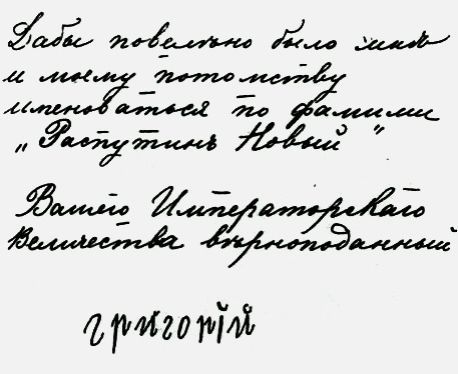 Дабы повелѣно было мнѣ
и моему потомству
именоваться по фамилии
„Распутинъ Новый”
Вашего Императорскаго
Величества вѣрноподанный
григорій